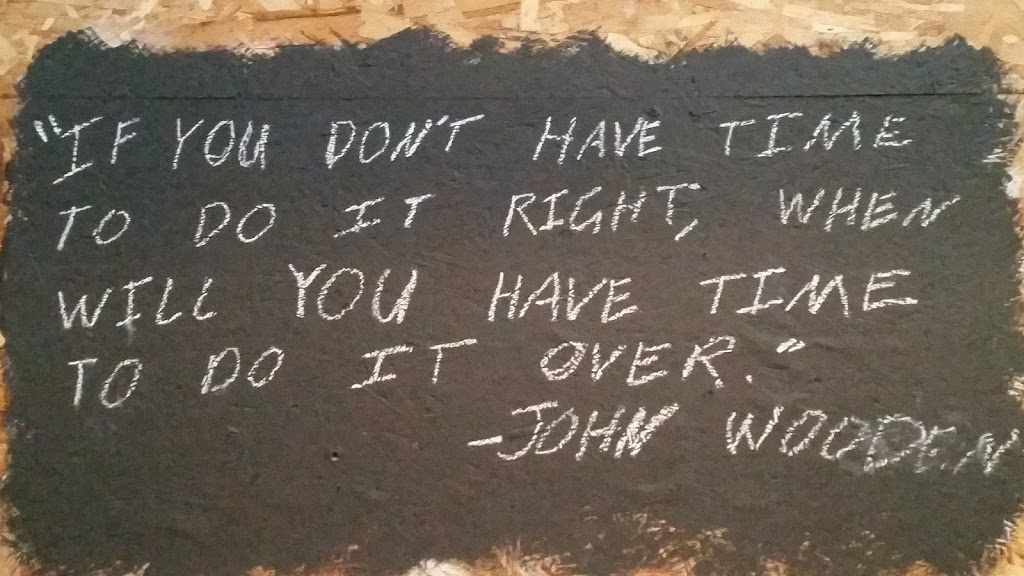 "IF YOU DON'T HAVE TIME
TO DO IT RIGHT, WHEN
WILL YOU HAVE TIME
TO DO IT OVER."
-JOHN WOODEN